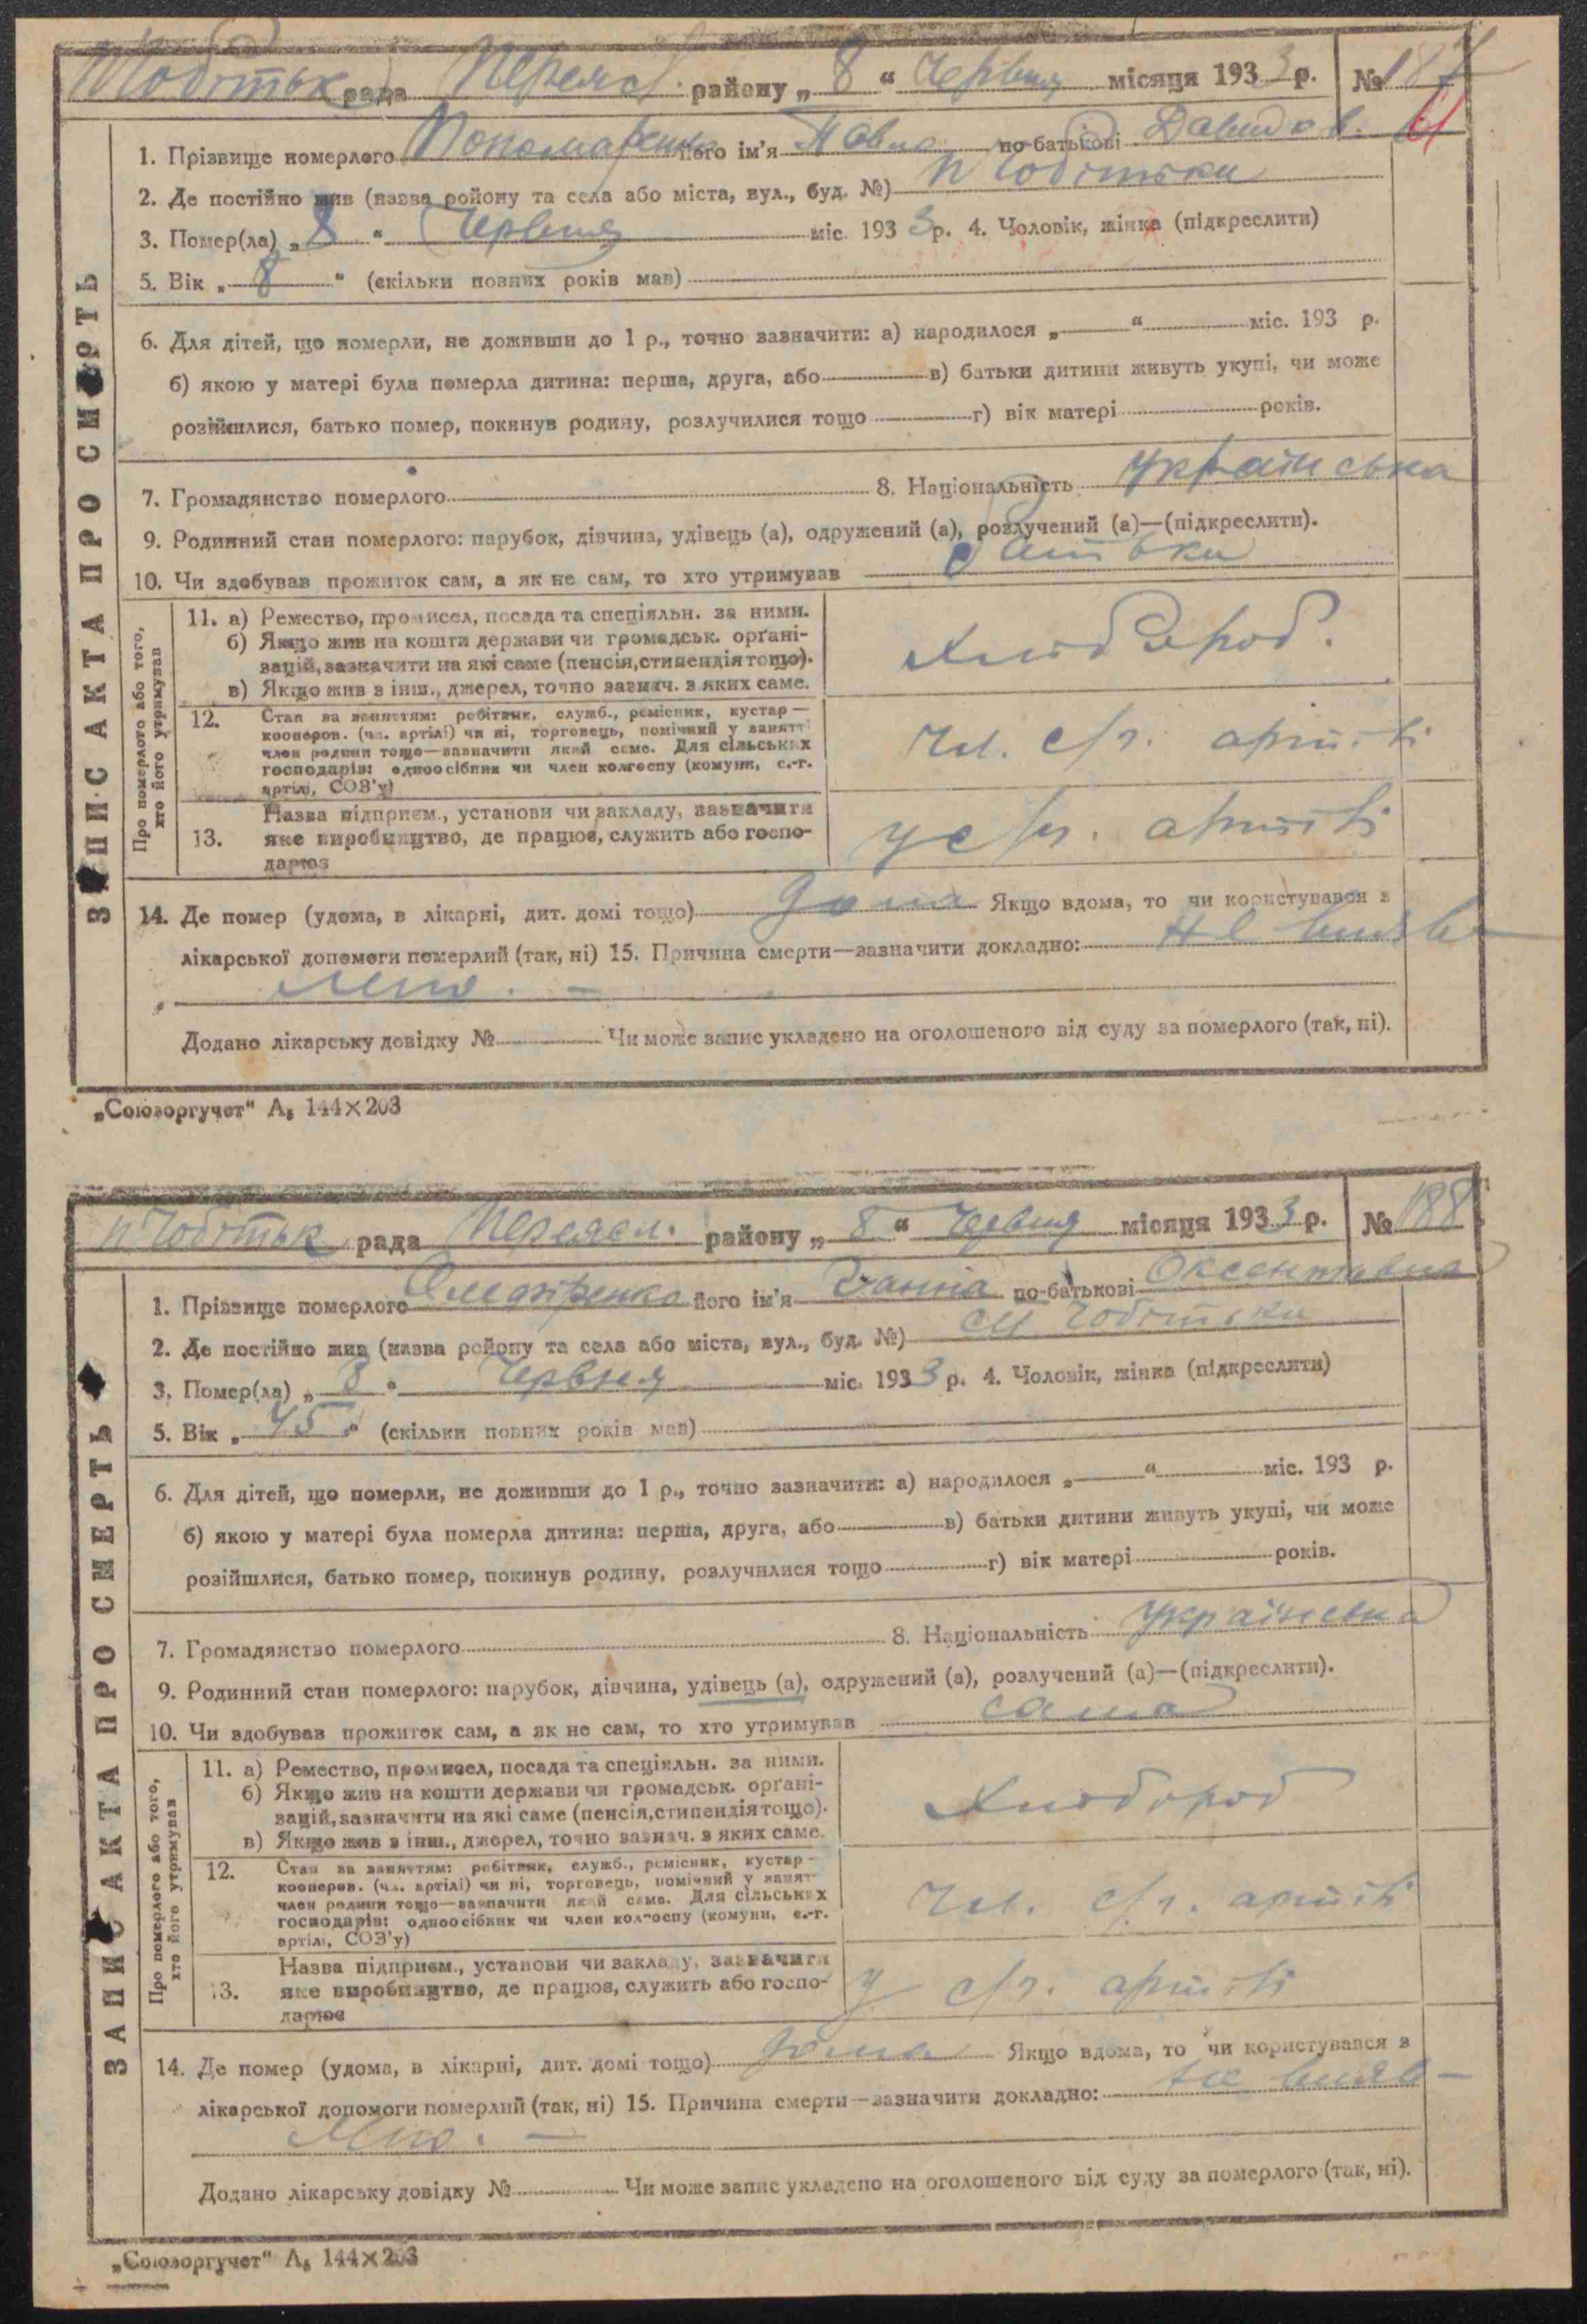 Чобітьк рада Переясл. району „ 8 “ Червня місяця 1933 р. № 187
61
1. Прізвище померлого Пономаренко його ім'я Павло по-батькові Давидов.
2. Де постійно жив (назва району та села або міста, вул., буд. №) п Чобітьки
3. Помер(ла) „ 8 “ Червня міс. 1933 р. 4. Чоловік, жінка (підкреслити)
5. Вік „ 8 “ (скільки повних років мав)
6. Для дітей, що померли, не доживши до 1 р., точно зазначити: а) народилося „ “ міс. 193 р.
б) якою у матері була померла дитина: перша, друга, або в) батьки дитини живуть укупі, чи може
розійшлися, батько помер, покинув родину, розлучилися тощо г) вік матері років.
7. Громадянство померлого 8. Національність українська
9. Родинний стан померлого: парубок, дівчина, удівець (а), одружений (а), розлучений (а)—(підкреслити).
10. Чи здобував прожиток сам, а як не сам, то хто утримував батьки
ЗАПИС АКТА ПРО СМЕРТЬ
Про померлого або того,
хто його утримував
11. а) Ремество, промисел, посада та спеціяльн. за ними.
б) Якщо жив на кошти держави чи громадськ. орґані-
зацій, зазначити на які саме (пенсія, стипендія тощо).
в) Якщо жив з інш., джерел, точно зазнач. з яких саме.
Хлібороб.
12. Стан за заняттям: робітник, служб., ремісник, кустар—
кооперов. (чл. артілі) чи ні, торговець, помічний у занятт
член родини тощо—зазначити який саме. Для сільських
господарів: одноосібник чи член колгоспу (комуни, с.-г.
артілі, СОЗ'у)
Чл. с/г. артілі
13. Назва підприєм., установи чи закладу, зазначити
яке виробництво, де працює, служить або госпо-
дарює
у с/г. артілі
14. Де помер (удома, в лікарні, дит. домі тощо) дома Якщо вдома, то чи користувався з
лікарської допомоги померлий (так, ні) 15. Причина смерти—зазначити докладно: Не вияв
лено. –
Додано лікарську довідку № Чи може запис укладено на оголошеного від суду за померлого (так, ні).
„Союзоргучет“ А₅ 144×203
п Чобітьк рада Переясл. району „ 8 “ Червня місяця 1933 р. № 188
1. Прізвище померлого його ім'я Ганна по-батькові Оксентовна
2. Де постійно жив (назва району та села або міста, вул., буд. №) Чобітьки
3. Помер(ла) „ 8 “ Червня міс. 1933 р. 4. Чоловік, жінка (підкреслити)
5. Вік „ 45 “ (скільки повних років мав)
6. Для дітей, що померли, не доживши до 1 р., точно зазначити: а) народилося „ “ міс. 193 р.
б) якою у матері була померла дитина: перша, друга, або в) батьки дитини живуть укупі, чи може
розійшлися, батько помер, покинув родину, розлучилися тощо г) вік матері років.
7. Громадянство померлого 8. Національність українська
9. Родинний стан померлого: парубок, дівчина, удівець (а), одружений (а), розлучений (а)—(підкреслити).
10. Чи здобував прожиток сам, а як не сам, то хто утримував сама
ЗАПИС АКТА ПРО СМЕРТЬ
Про померлого або того,
хто його утримував
11. а) Ремество, промисел, посада та спеціяльн. за ними.
б) Якщо жив на кошти держави чи громадськ. орґані-
зацій, зазначити на які саме (пенсія, стипендія тощо).
в) Якщо жив з інш., джерел, точно зазнач. з яких саме.
Хлібороб
12. Стан за заняттям: робітник, служб., ремісник, кустар—
кооперов. (чл. артілі) чи ні, торговець, помічний у занят
член родини тощо—зазначити який саме. Для сільських
господарів: одноосібник чи член колгоспу (комуни, с.-г.
артілі, СОЗ'у)
Чл. с/г. артілі
13. Назва підприєм., установи чи закладу, зазначити
яке виробництво, де працює, служить або госпо-
дарює
у с/г. артілі
14. Де помер (удома, в лікарні, дит. домі тощо) дома Якщо вдома, то чи користувався з
лікарської допомоги померлий (так, ні) 15. Причина смерти—зазначити докладно: не вияв–
лено. –
Додано лікарську довідку № Чи може запис укладено на оголошеного від суду за померлого (так, ні).
„Союзоргучет“ А₅ 144×203